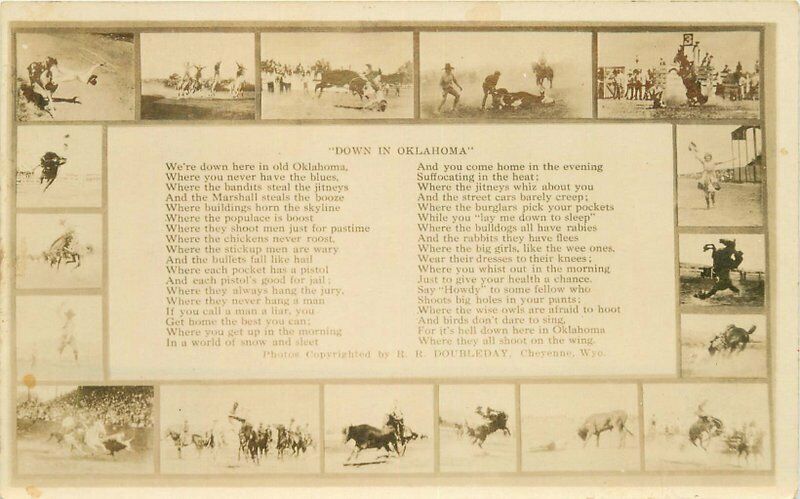 "DOWN IN OKLAHOMA"
We're down here in old Oklahoma,
Where you never have the blues,
Where the bandits steal the jitneys
And the Marshall steals the booze
Where buildings horn the skyline
Where the populace is boost
Where they shoot men just for pastime
Where the chickens never roost,
Where the stickup men are wary
And the bullets fall like hail
Where each pocket has a pistol
And each pistol's good for jail;
Where they always hang the jury,
Where they never hang a man
If you call a man a liar, you
Get home the best you can;
Where you get up in the morning
In a world of snow and sleet
And you come home in the evening
Suffocating in the heat;
Where the jitneys whiz about you
And the street cars barely creep;
Where the burglars pick your pockets
While you "lay me down to sleep"
Where the bulldogs all have rabies
And the rabbits they have flees
Where the big girls, like the wee ones.
Wear their dresses to their knees;
Where you whist out in the morning
Just to give your health a chance.
Say "Howdy" to some fellow who
Shoots big holes in your pants;
Where the wise owls are afraid to hoot
And birds don't dare to sing,
For it's hell down here in Oklahoma
Where they all shoot on the wing.
Photos Copyrighted by R. R. DOUBLEDAY, Cheyenne, Wyo.